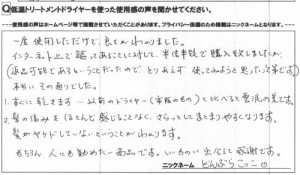 Q低温トリートメントドライヤーを使った使用感の声を聞かせてください。
・使用感の声はホームページ等で掲載させていただくことがあります。プライバシー保護のため掲載はニックネームとなります。
一度使用しただけで、良さがわかりました。
インターネット上で騙ってあることに対して、半信半疑で購入を決しましたが、
(返品可能であるということだったので とりあえず 使ってみようと思った次第です)
本当に その通りでした。
1. すぐに乾きます … 以前のドライヤー(市販のもの)と比べると雲泥の差です。
2. 髪の傷みをほとんど感じることなく、さらっとしてまとまりやすくなります。
髪がヤケドしていないということがわかります。
もちろん 人にも勧めたい商品です。いいものに出会えて感謝です。
ニックネーム どんぶらこっこ